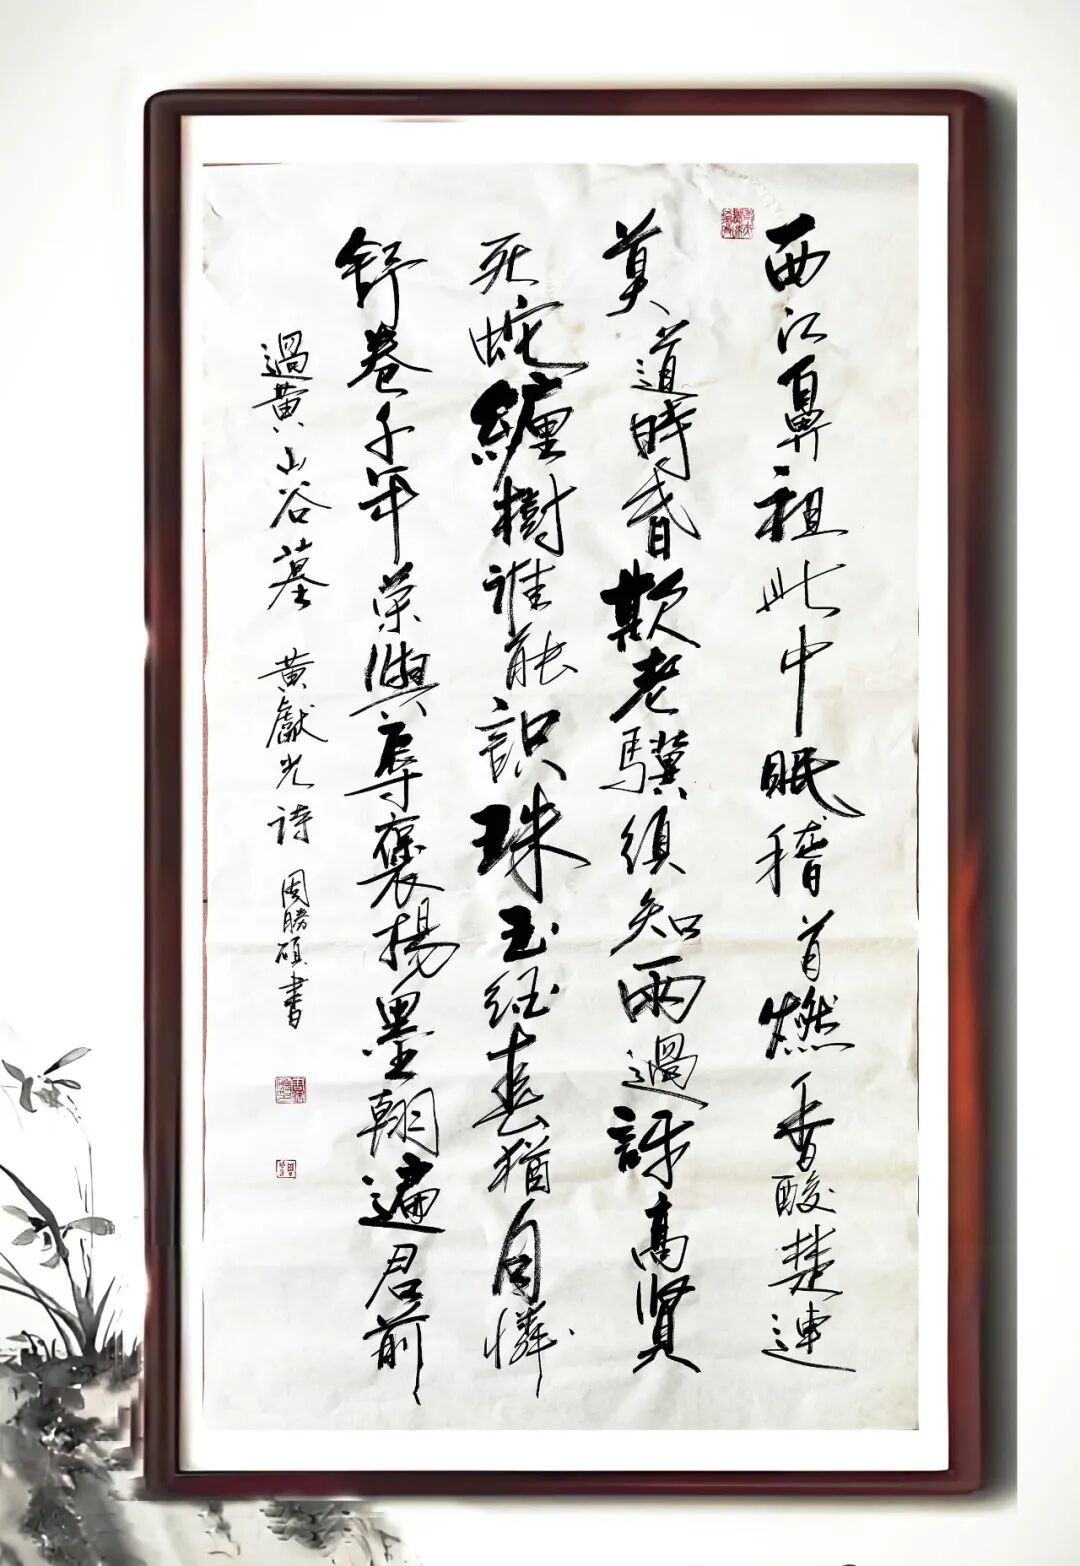 西江鼻祖此中眠稽首燃香酸楚連
莫道時昏欺老驥須知雨過訝高賢
死蛇纏樹誰能識珠玉經猶自憐
舒卷千年荣與辱褒揚墨翰遍君前
過黄山谷墓 黄獻光詩 周勝碩書